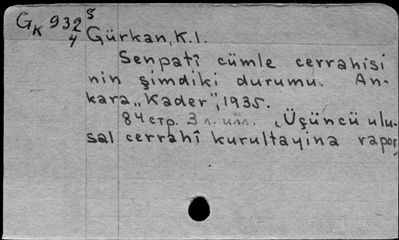 Gk 932 5/4
Gürkan, K.I.
Senpatî cümle cerrahisi
nin şimdiki durumu. An-
kara, „Kader", 1935.
84 стр. 3 л. илл. (Üçüncü ulu-
sal cerrahî kurultayina rapor